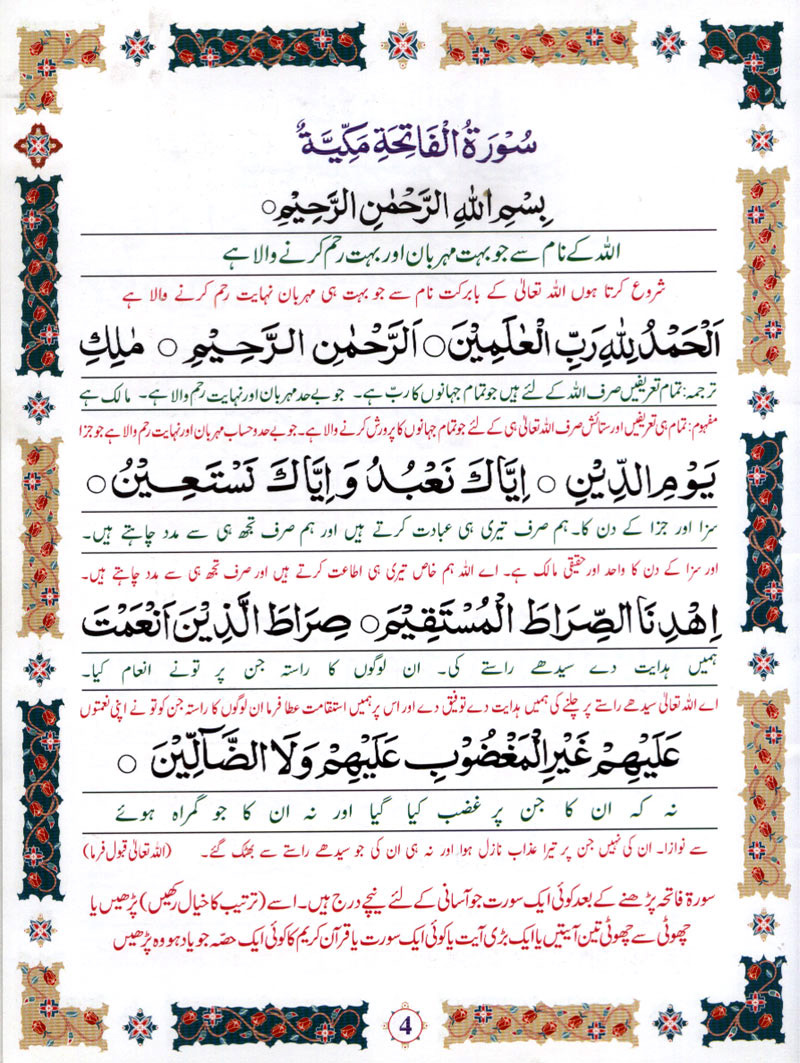 4
سُوْرَةُ الْفَاتِحَةِ مَكِّيَّةٌ
بِسْمِ اللهِ الرَّحْمٰنِ الرَّحِيْمِ○
اللہ کے نام سے جو بہت مہربان اور بہت رحم کرنے والا ہے
شروع کرتا ہوں اللہ تعالیٰ کے بابرکت نام سے جو بہت ہی مہربان نہایت رحم کرنے والا ہے
اَلْحَمْدُ لِلّٰهِ رَبِّ الْعٰلَمِيْنَ○ اَلرَّحْمٰنِ الرَّحِيْمِ ○ مٰلِكِ
ترجمہ: تمام تعریفیں صرف اللہ کے لئے ہیں جو تمام جہانوں کا ربّ ہے۔ جو بے حد مہربان اور نہایت رحم والا ہے۔ مالک ہے
مفہوم: تمام ہی تعریفیں اور ستائش صرف اللہ تعالیٰ ہی کے لئے جو تمام جہانوں کا پرورش کرنے والا ہے۔ جو بے حدوحساب مہربان اور نہایت رحم والا ہے جو جزا
يَوْمِ الدِّيْنِ ○ اِيَّاكَ نَعْبُدُ وَ اِيَّاكَ نَسْتَعِيْنُ ○
سزا اور جزا کے دن کا۔ ہم صرف تیری ہی عبادت کرتے ہیں اور ہم صرف تجھ ہی سے مدد چاہتے ہیں۔
اور سزا کے دن کا واحد اور حقیقی مالک ہے۔ اے اللہ ہم خاص تیری ہی اطاعت کرتے ہیں اور صرف تجھ ہی سے مدد چاہتے ہیں۔
اِهْدِنَا الصِّرَاطَ الْمُسْتَقِيْمَ○ صِرَاطَ الَّذِيْنَ اَنْعَمْتَ
ہمیں ہدایت دے سیدھے راستے کی۔ ان لوگوں کا راستہ جن پر تونے انعام کیا۔
اے اللہ تعالیٰ سیدھے راستے پر چلنے کی ہمیں ہدایت دے توفیق دے اور اس پر ہمیں استقامت عطا فرما ان لوگوں کا راستہ جن کو تو نے اپنی نعمتوں
عَلَيْهِمْ غَيْرِ الْمَغْضُوْبِ عَلَيْهِمْ وَلَا الضَّآلِّيْنَ ○
نہ کہ ان کا جن پر غضب کیا گیا اور نہ ان کا جو گمراہ ہوئے
سے نوازا۔ ان کی نہیں جن پر تیرا عذاب نازل ہوا اور نہ ہی ان کی جو سیدھے راستے سے بھٹک گئے۔ (اللہ تعالیٰ قبول فرما)
سورۃ فاتحہ پڑھنے کے بعد کوئی ایک سورت جو آسانی کے لئے نیچے درج ہیں۔ اسے (ترتیب کا خیال رکھیں) پڑھیں یا
چھوٹی سے چھوٹی تین آیتیں یا ایک بڑی آیت یا کوئی ایک سورت یا قرآن کریم کا کوئی ایک حصّہ جو یاد ہو وہ پڑھیں
4